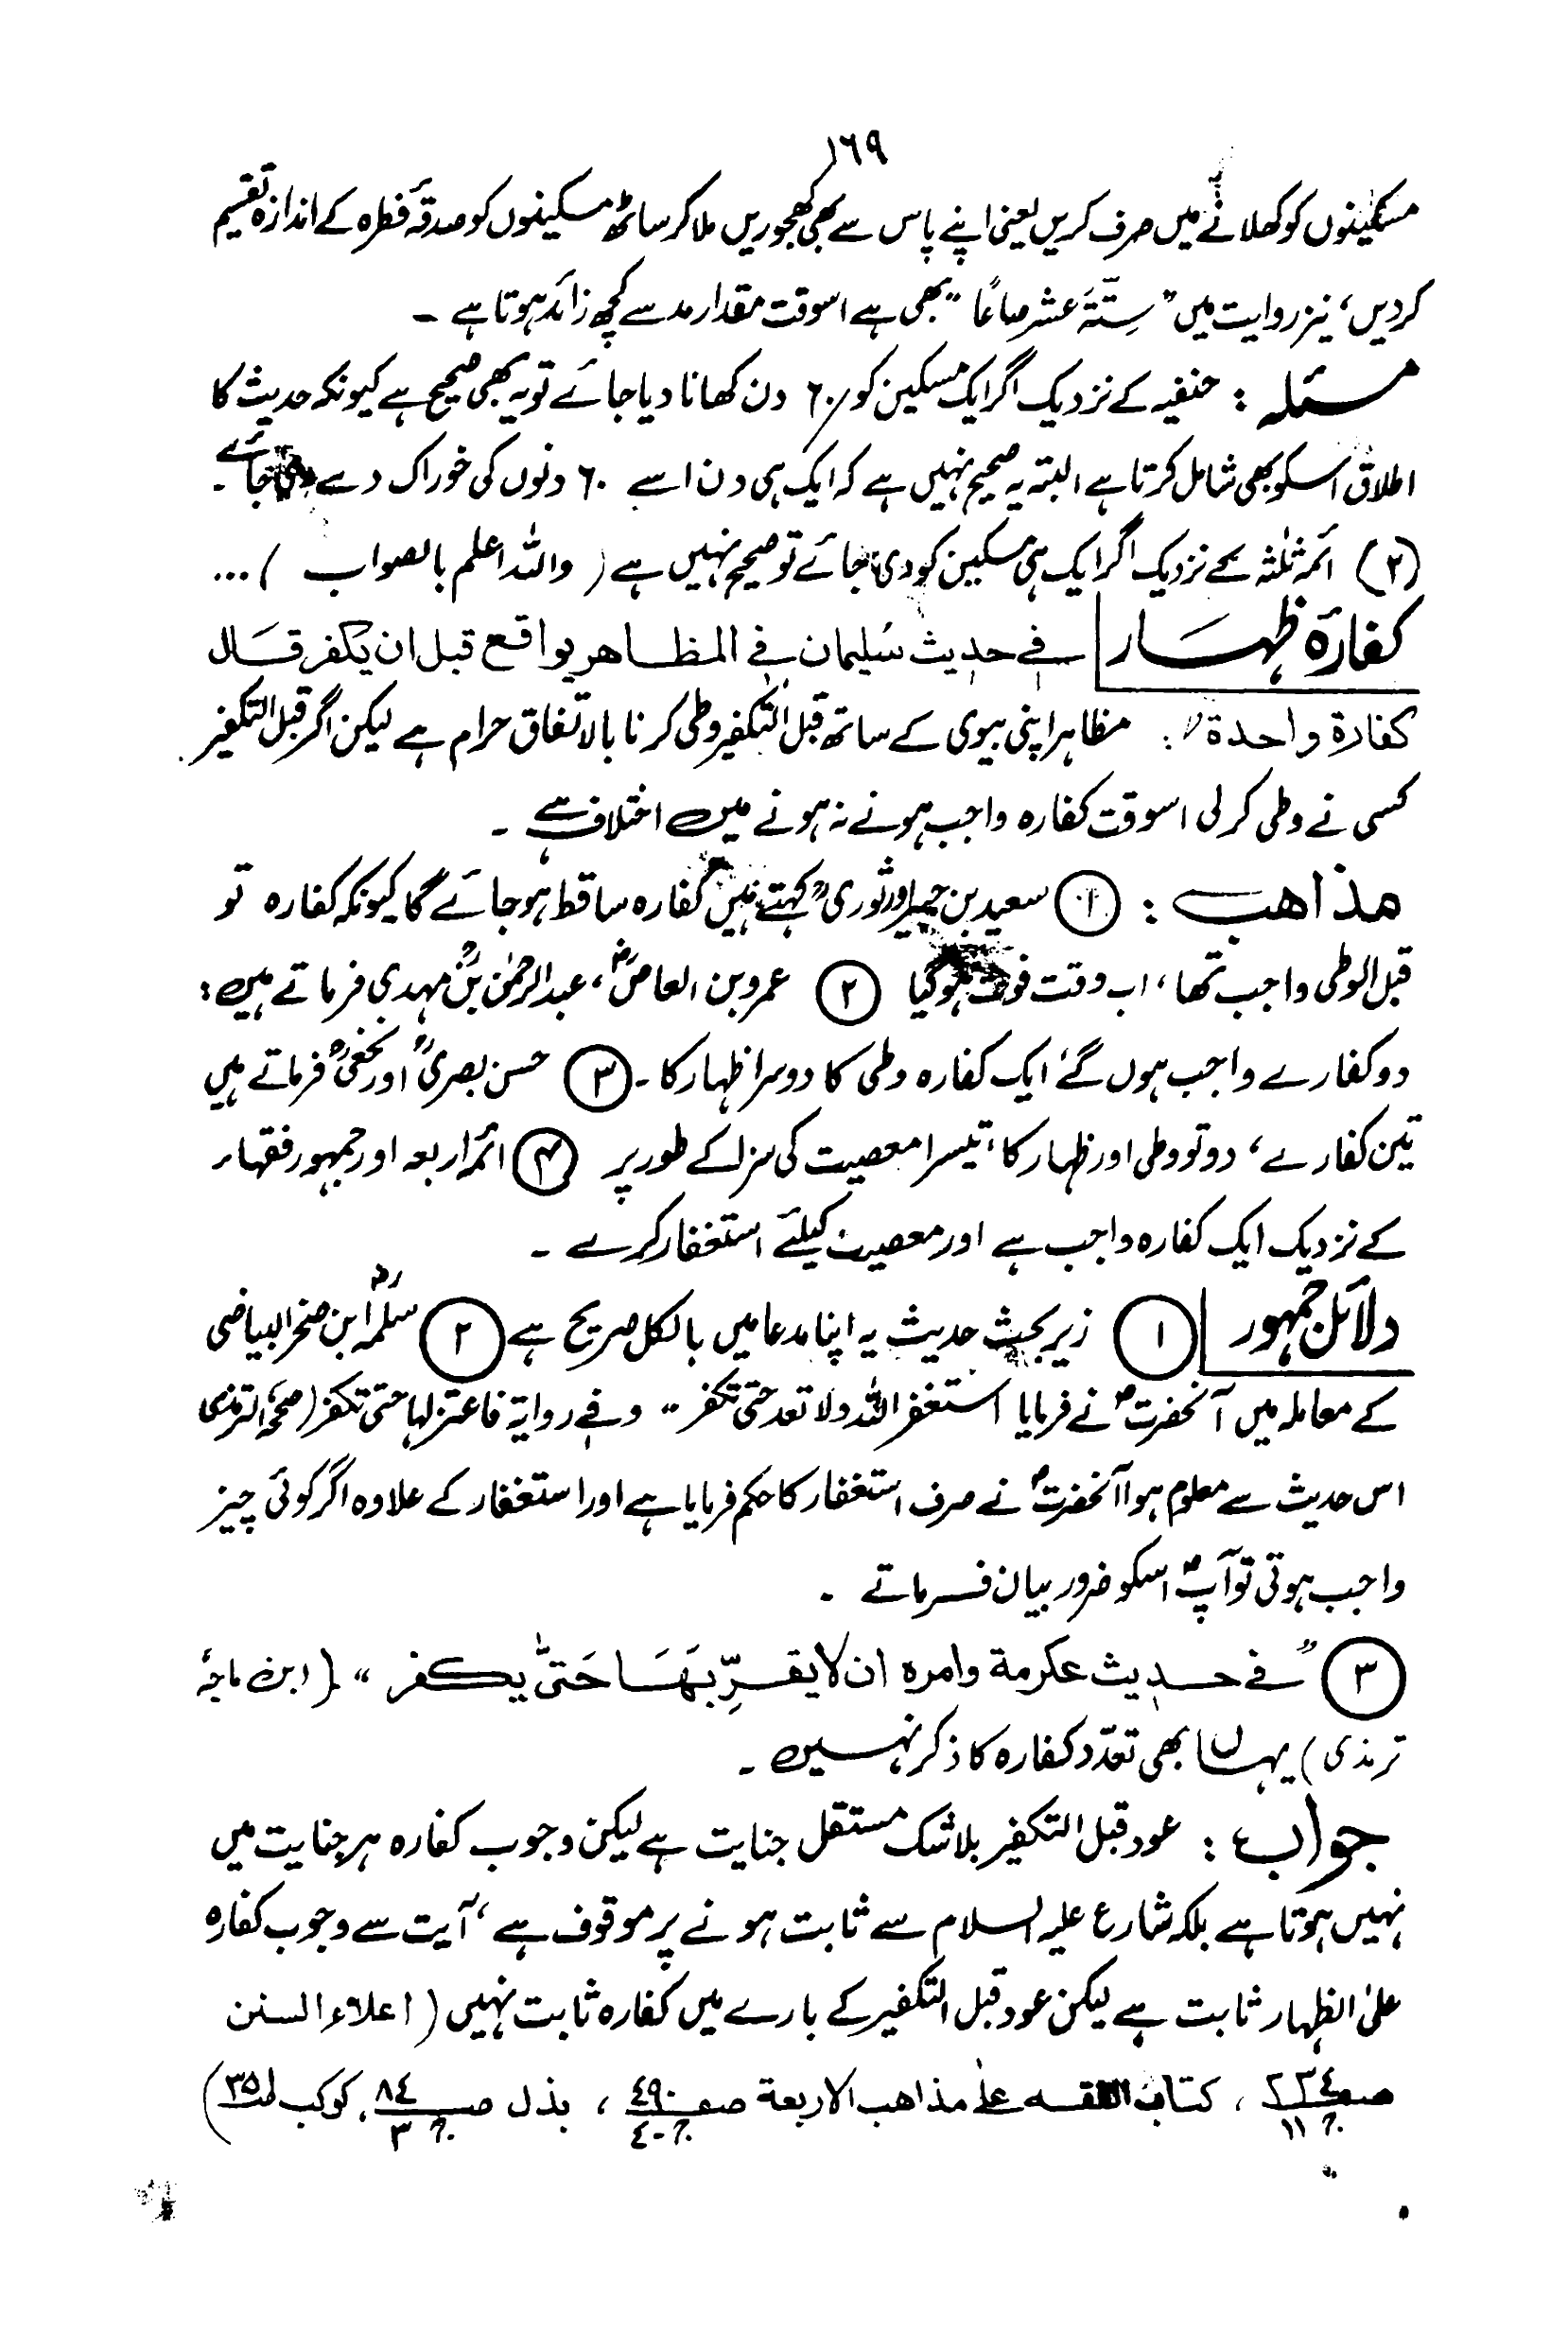 ١٦٩
مسکینوں کو کھلانے میں صرف کریں یعنی اپنے پاس سے بھی کھجوریں ملا کر ساٹھ مسکینوں کو صدقۂ فطرہ کے اندازہ تقسیم
کردیں، نیز روایت میں "سِتَّةَ عشر صاعًا" بھی ہے اسوقت مقدار مد سے کچھ زائد ہوتا ہے ۔
مسئلہ : حنفیہ کے نزدیک اگر ایک مسکین کو /٦٠ دن کھانا دیا جائے تو یہ بھی صحیح ہے کیونکہ حدیث کا
اطلاق اسکو بھی شامل کرتا ہے البتہ یہ صحیح نہیں ہے کہ ایک ہی دن اسے ٦٠ دنوں کی خوراک دے دی جائے ۔
(٢) ائمہ ثلٰثہ کے نزدیک اگر ایک ہی مسکین کو دی جائے تو صحیح نہیں ہے ( واللہ اعلم بالصواب ) ...
کفارۂ ظہار فی حدیث سُلیمان فی المظاهر یواقع قبل ان یکفر قال
کفارة واحدة" : مظاہر اپنی بیوی کے ساتھ قبل التکفیر وطی کرنا بالاتفاق حرام ہے لیکن اگر قبل التکفیر
کسی نے وطی کرلی اسوقت کفارہ واجب ہونے نہ ہونے میں اختلاف ہے ۔
مذاھب : (١) سعید بن جبیر اور ثوریؒ کہتے ہیں کفارہ ساقط ہوجائے گا کیونکہ کفارہ تو
قبل الوطی واجب تھا ، اب وقت فوت ہوگیا (٢) عمرو بن العاصؓ ، عبدالرحمٰن بنؒ مہدی فرماتے ہیں :
دو کفارے واجب ہوں گے ایک کفارہ وطی کا دوسرا ظہار کا ۔ (٣) حسن بصریؒ اور نخعیؒ فرماتے ہیں
تین کفارے ، دو تو وطی اور ظہار کا ، تیسرا معصیت کی سزا کے طور پر (٤) ائمہ اربعہ اور جمہور فقہاء
کے نزدیک ایک کفارہ واجب ہے اور معصیت کیلئے استغفار کرے ۔
دلائل جمہور (١) زیر بحث حدیث یہ اپنا مدعا میں بالکل صریح ہے (٢) سلمہؓ ابن صخر البیاضی
کے معاملہ میں آنحضرتؐ نے فرمایا استغفر اللہ ولا تعد حتی تکفر " و فی روایة فاعتزلہا حتی تکفر (صححہ الترمذی
اس حدیث سے معلوم ہوا آنحضرتؐ نے صرف استغفار کا حکم فرمایا ہے اور استغفار کے علاوہ اگر کوئی چیز
واجب ہوتی تو آپؐ اسکو ضرور بیان فرماتے ۔
(٣) "فی حدیث عکرمة وامره ان لا یقربها حَتّٰی یکفر " (ابن ماجہ
ترمذی) یہاں بھی تعدّد کفارہ کا ذکر نہیں ۔
جواب : عود قبل التکفیر بلاشک مستقل جنایت ہے لیکن وجوب کفارہ ہر جنایت میں
نہیں ہوتا ہے بلکہ شارع علیہ السلام سے ثابت ہونے پر موقوف ہے ، آیت سے وجوب کفارہ
علیٰ الظہار ثابت ہے لیکن عود قبل التکفیر کے بارے میں کفارہ ثابت نہیں ( اعلاء السنن
صـ٢٣٤ جـ١١ ، کتاب الفقه علی مذاھب الاربعة صـ٤٩٠ جـ٤ ، بذل صـ٨٤ جـ٣ ، کوکب صـ٣٥)